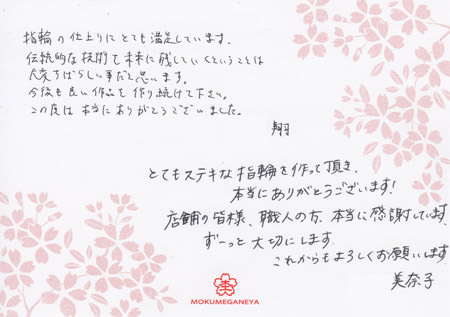 指輪の仕上りにとても満足しています。
伝統的な技術を未来に残していくということは
大変すばらしい事だと思います。
今後も良い作品を作り続けて下さい。
この度は本当にありがとうございました。
翔
とてもステキな指輪を作って頂き、
本当にありがとうございます!
店舗の皆様、職人の方、本当に感謝しています。
ずーっと大切にします。
これからもよろしくお願いします
美奈子
MOKUMEGANEYA